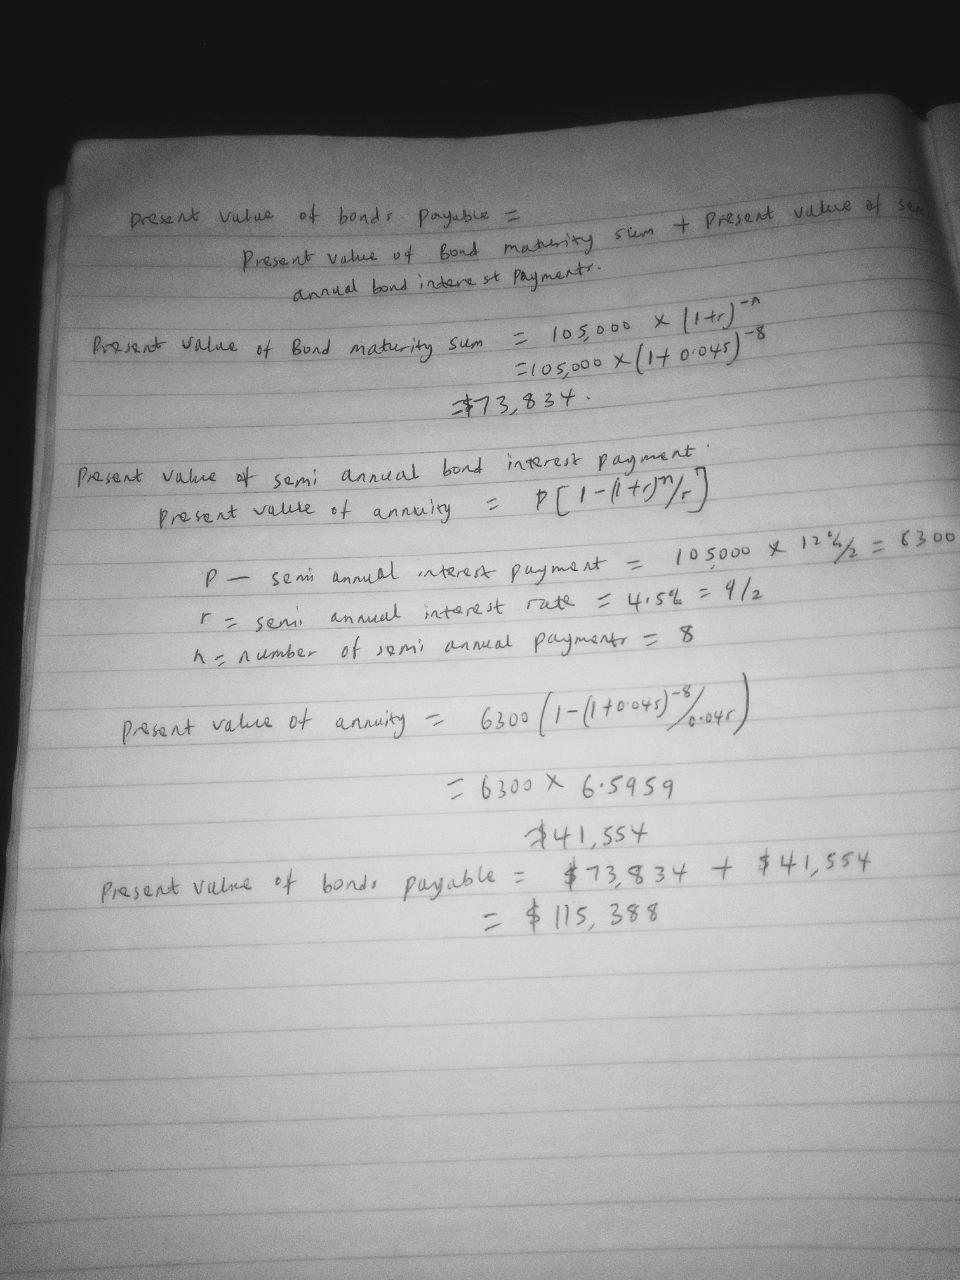 Present value of bonds payable =
Present value of Bond maturity sum + Present value of
annual bond interest payments.
Present value of Bond maturity sum = 105,000 x (1+r)^-n
= 105,000 x (1+0.045)^-8
= $73,834.
Present value of semi annual bond interest payment.
Present value of annuity = P[1-(1+r)^n/r]
P - semi annual interest payment = 105,000 x 12%/2 = 6300
r = semi annual interest rate = 4.5% = 9/2
n = number of semi annual payments = 8
Present value of annuity = 6300 (1-(1+0.045)^-8/0.045)
= 6300 x 6.5959
= $41,554
Present value of bonds payable = $73,834 + $41,554
= $115,388